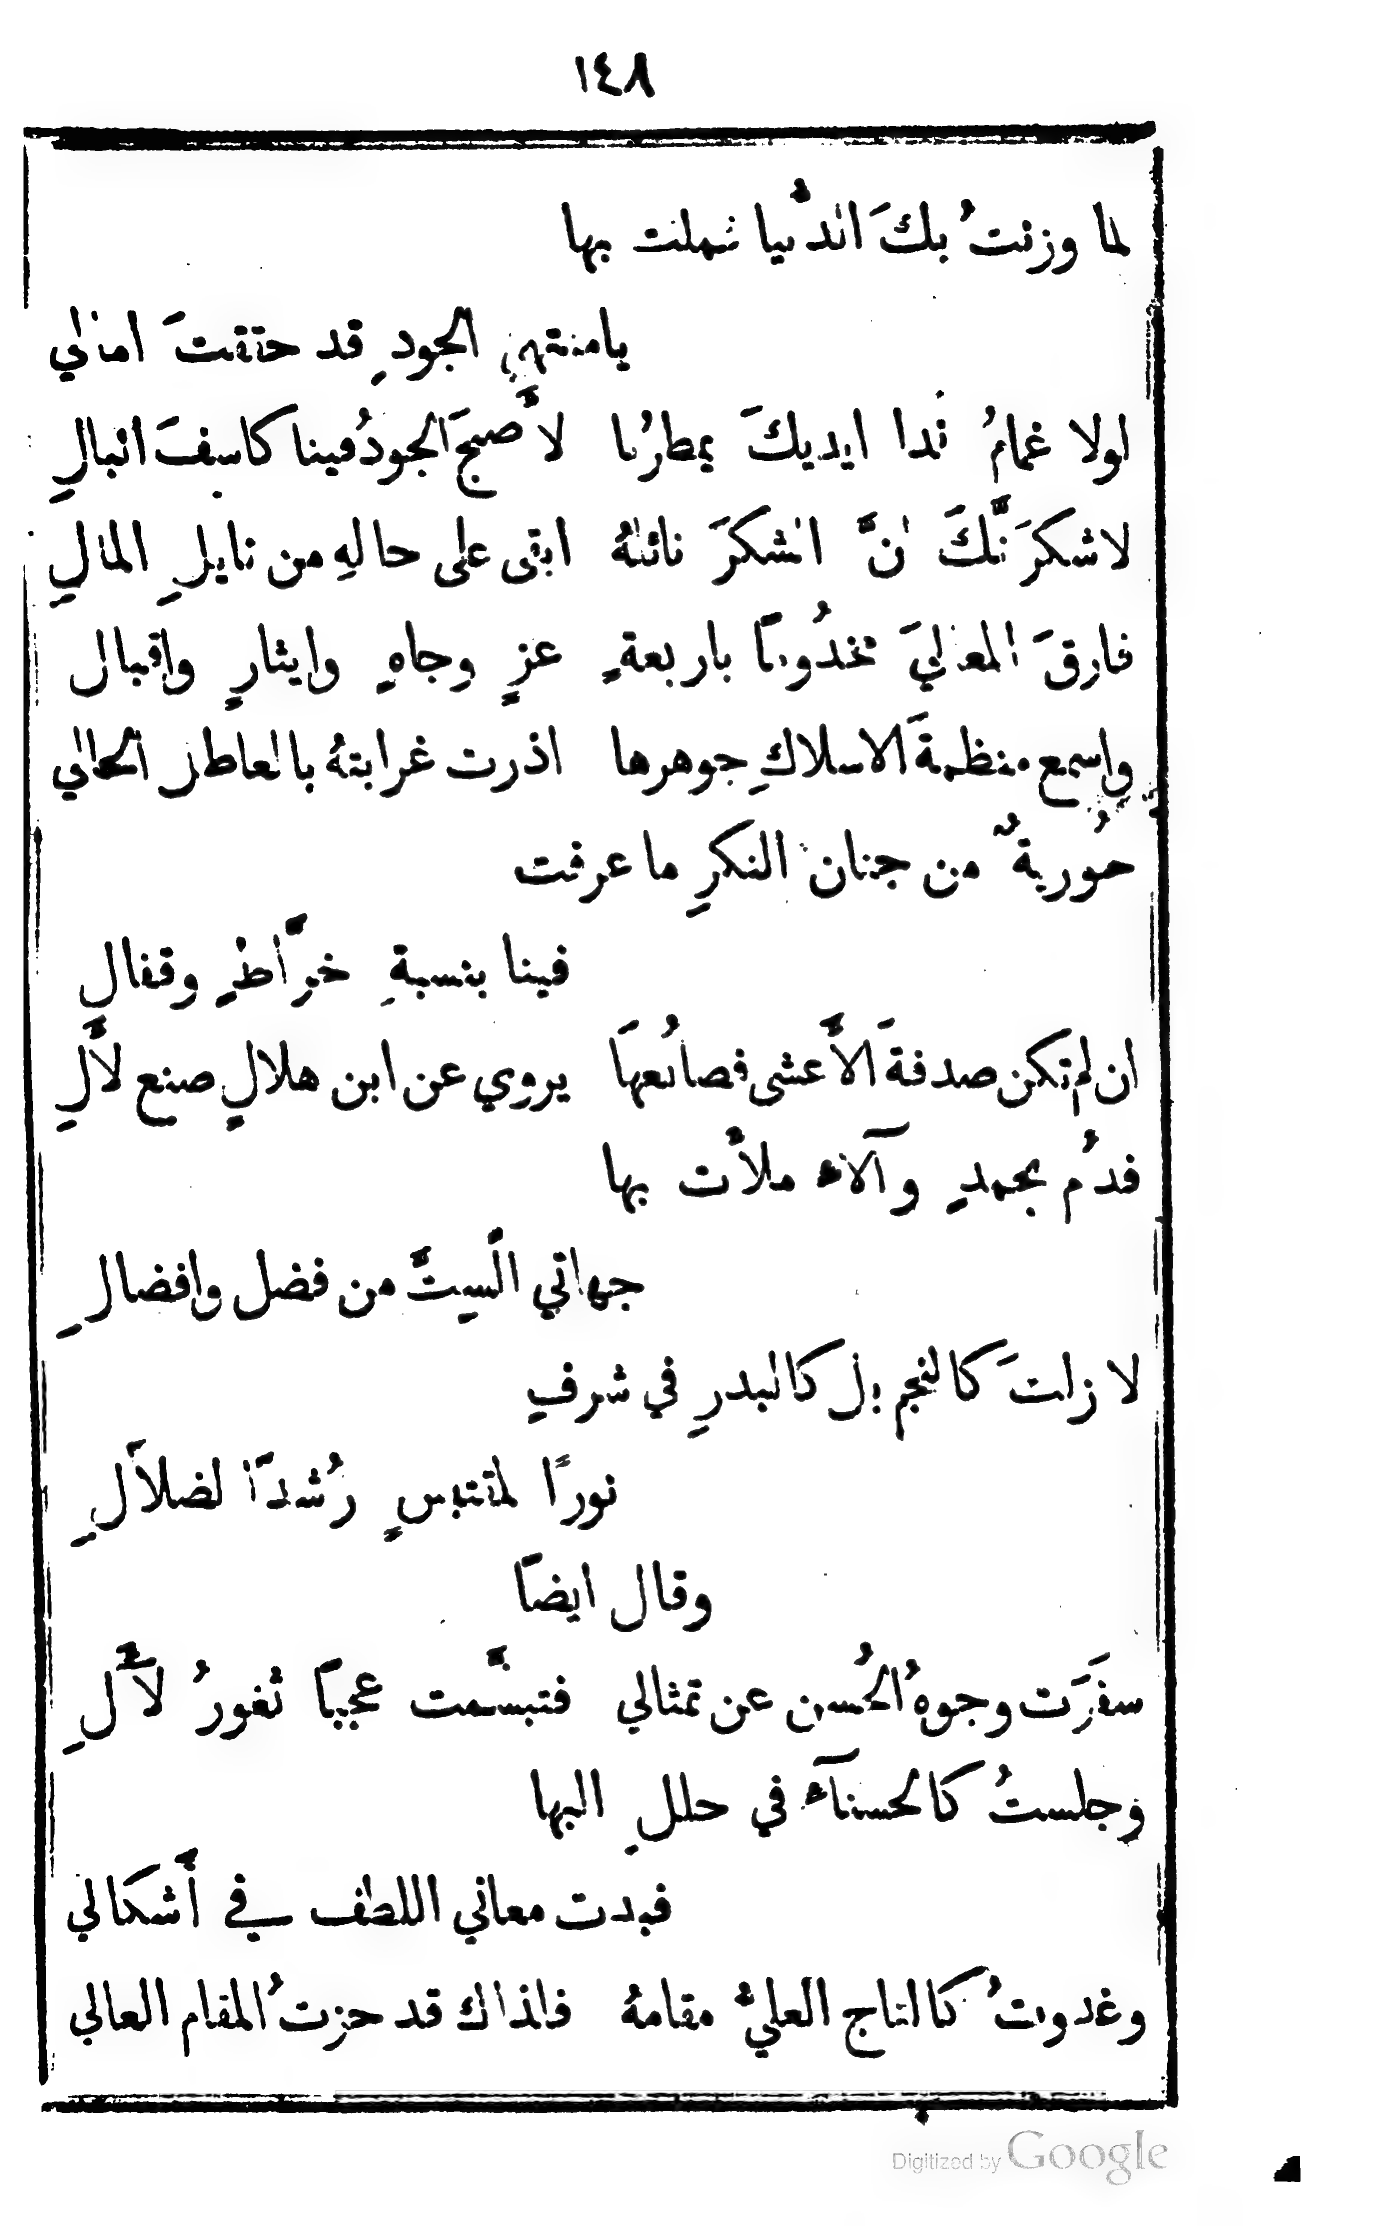 ١٤٨
لما وزنتُ بكَ الدُّنيا شملت بها
يا منتهى الجودِ قد حققتَ امالي
لولا غمامُ ندا ايديكَ يمطرُنا لاَصبحَ الجودُ فينا كاسفَ البالِ
لاشكرَنَّكَ انَّ الشكرَ نائلهُ ابقى على حالهِ من نايلِ المالِ
فارقَ المعاليَ مخدُومًا باربعةٍ عزٍ وجاهٍ وايثارٍ واقبال
واسمع منظمةَ الاسلاكِ جوهرها اذرت غرابتهُ بالعاطل الحالي
حُوريةٌ من جنان الفكرِ ما عرفت
فينا بنسبةِ خرَّاطٍ وقفال
ان لم تكن صدفةَ الاَّعشى فصانُعهَا يروي عن ابن هلالٍ صنع لآلِ
فدُم بحمدٍ وآلآء ملأت بها
جهاتي الستَّ من فضل وافضالِ
لا زلتَ كالنجم بل كالبدرِ في شرفٍ
نورًا لمقتبسٍ رُشدًا لضلاَلِ
وقال ايضاً
سفَرَت وجوهُ الحُسن عن تمثالي فتبسَّمت عجبًا ثغورُ لآلِ
وجلستُ كالحسنآء في حللِ البها
فبدت معاني اللطف في أشكالي
وغدوتُ كالتاج العليُّ مقامهُ فلذاك قد حزتُ المقام العالي
Digitized by Google